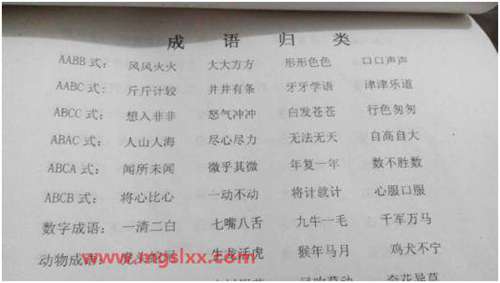 成 语 归 类
AABB 式: 风风火火 大大方方 形形色色 口口声声
AABC 式: 斤斤计较 井井有条 牙牙学语 津津乐道
ABCC 式: 想入非非 怒气冲冲 白发苍苍 行色匆匆
ABAC 式: 人山人海 尽心尽力 无法无天 自高自大
ABCA 式: 闻所未闻 微乎其微 年复一年 数不胜数
ABCB 式: 将心比心 一动不动 将计就计 心服口服
数字成语: 一清二白 七嘴八舌 九牛一毛 千军万马
动物成语: 生龙活虎 猴年马月 鸡犬不宁
www.mgslxx.com